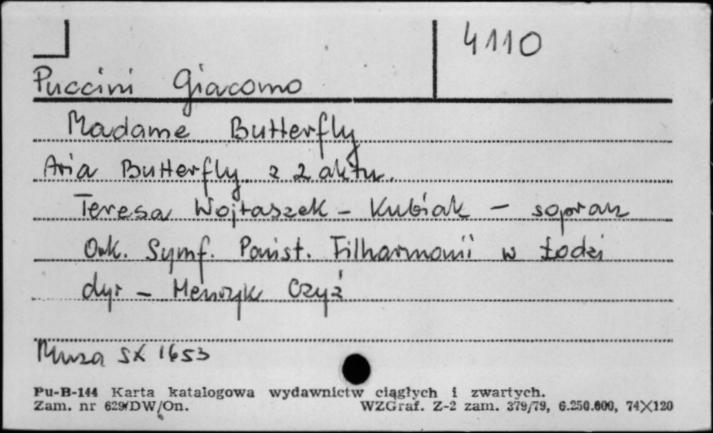 4110
Puccini Giacomo
Madame Butterfly
Aria Butterfly z 2 aktu.
Teresa Wojtaszek - Kubiak - sopran
Ork. Symf. Państ. Filharmonii w Łodzi
dyr - Henryk Czyż
Muza SX 1653
Pu-B-144 Karta katalogowa wydawnictw ciągłych i zwartych.
Zam. nr 629/DW/On. WZGraf. Z-2 zam. 379/79, 6.250.000, 74X120